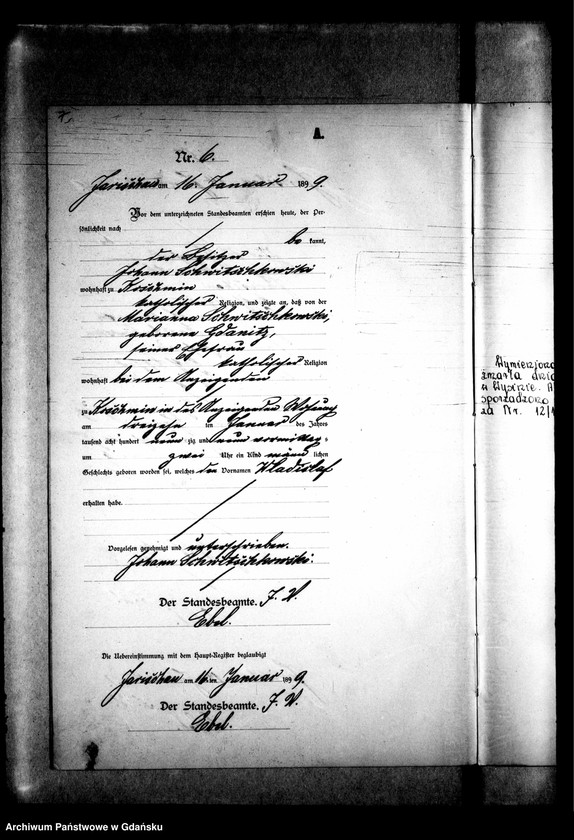 A.
Nr. 6.
Jarischau am 16. Januar 1899.
Vor dem unterzeichneten Standesbeamten erschien heute, der Per-
sönlichkeit nach
be kannt,
der Besitzer
Johann Schwitschkowski
wohnhaft zu
katholischer Religion, und zeigte an, daß von der
Marianna Schwitschkowski,
geborene Gdanitz,
seiner Ehefrau
katholischer Religion
wohnhaft bei dem Anzeigenden
zu in des Anzeigenden Wohnung
am dreizehn ten Januar des Jahres
tausend acht hundert neun zig und neun vormittags
um zwei Uhr ein Kind männ lichen
Geschlechts geboren worden sei, welches den Vornamen Wladislaf
erhalten habe.
Vorgelesen, genehmigt und unterschrieben.
Johann Schwitschkowski.
Der Standesbeamte. J. V.
Ebel.
Die Uebereinstimmung mit dem Haupt-Register beglaubigt
Jarischau am 16 ten Januar 1899.
Der Standesbeamte. J. V.
Ebel.
zmarła
za Nr. 12/1
Archiwum Państwowe w Gdańsku